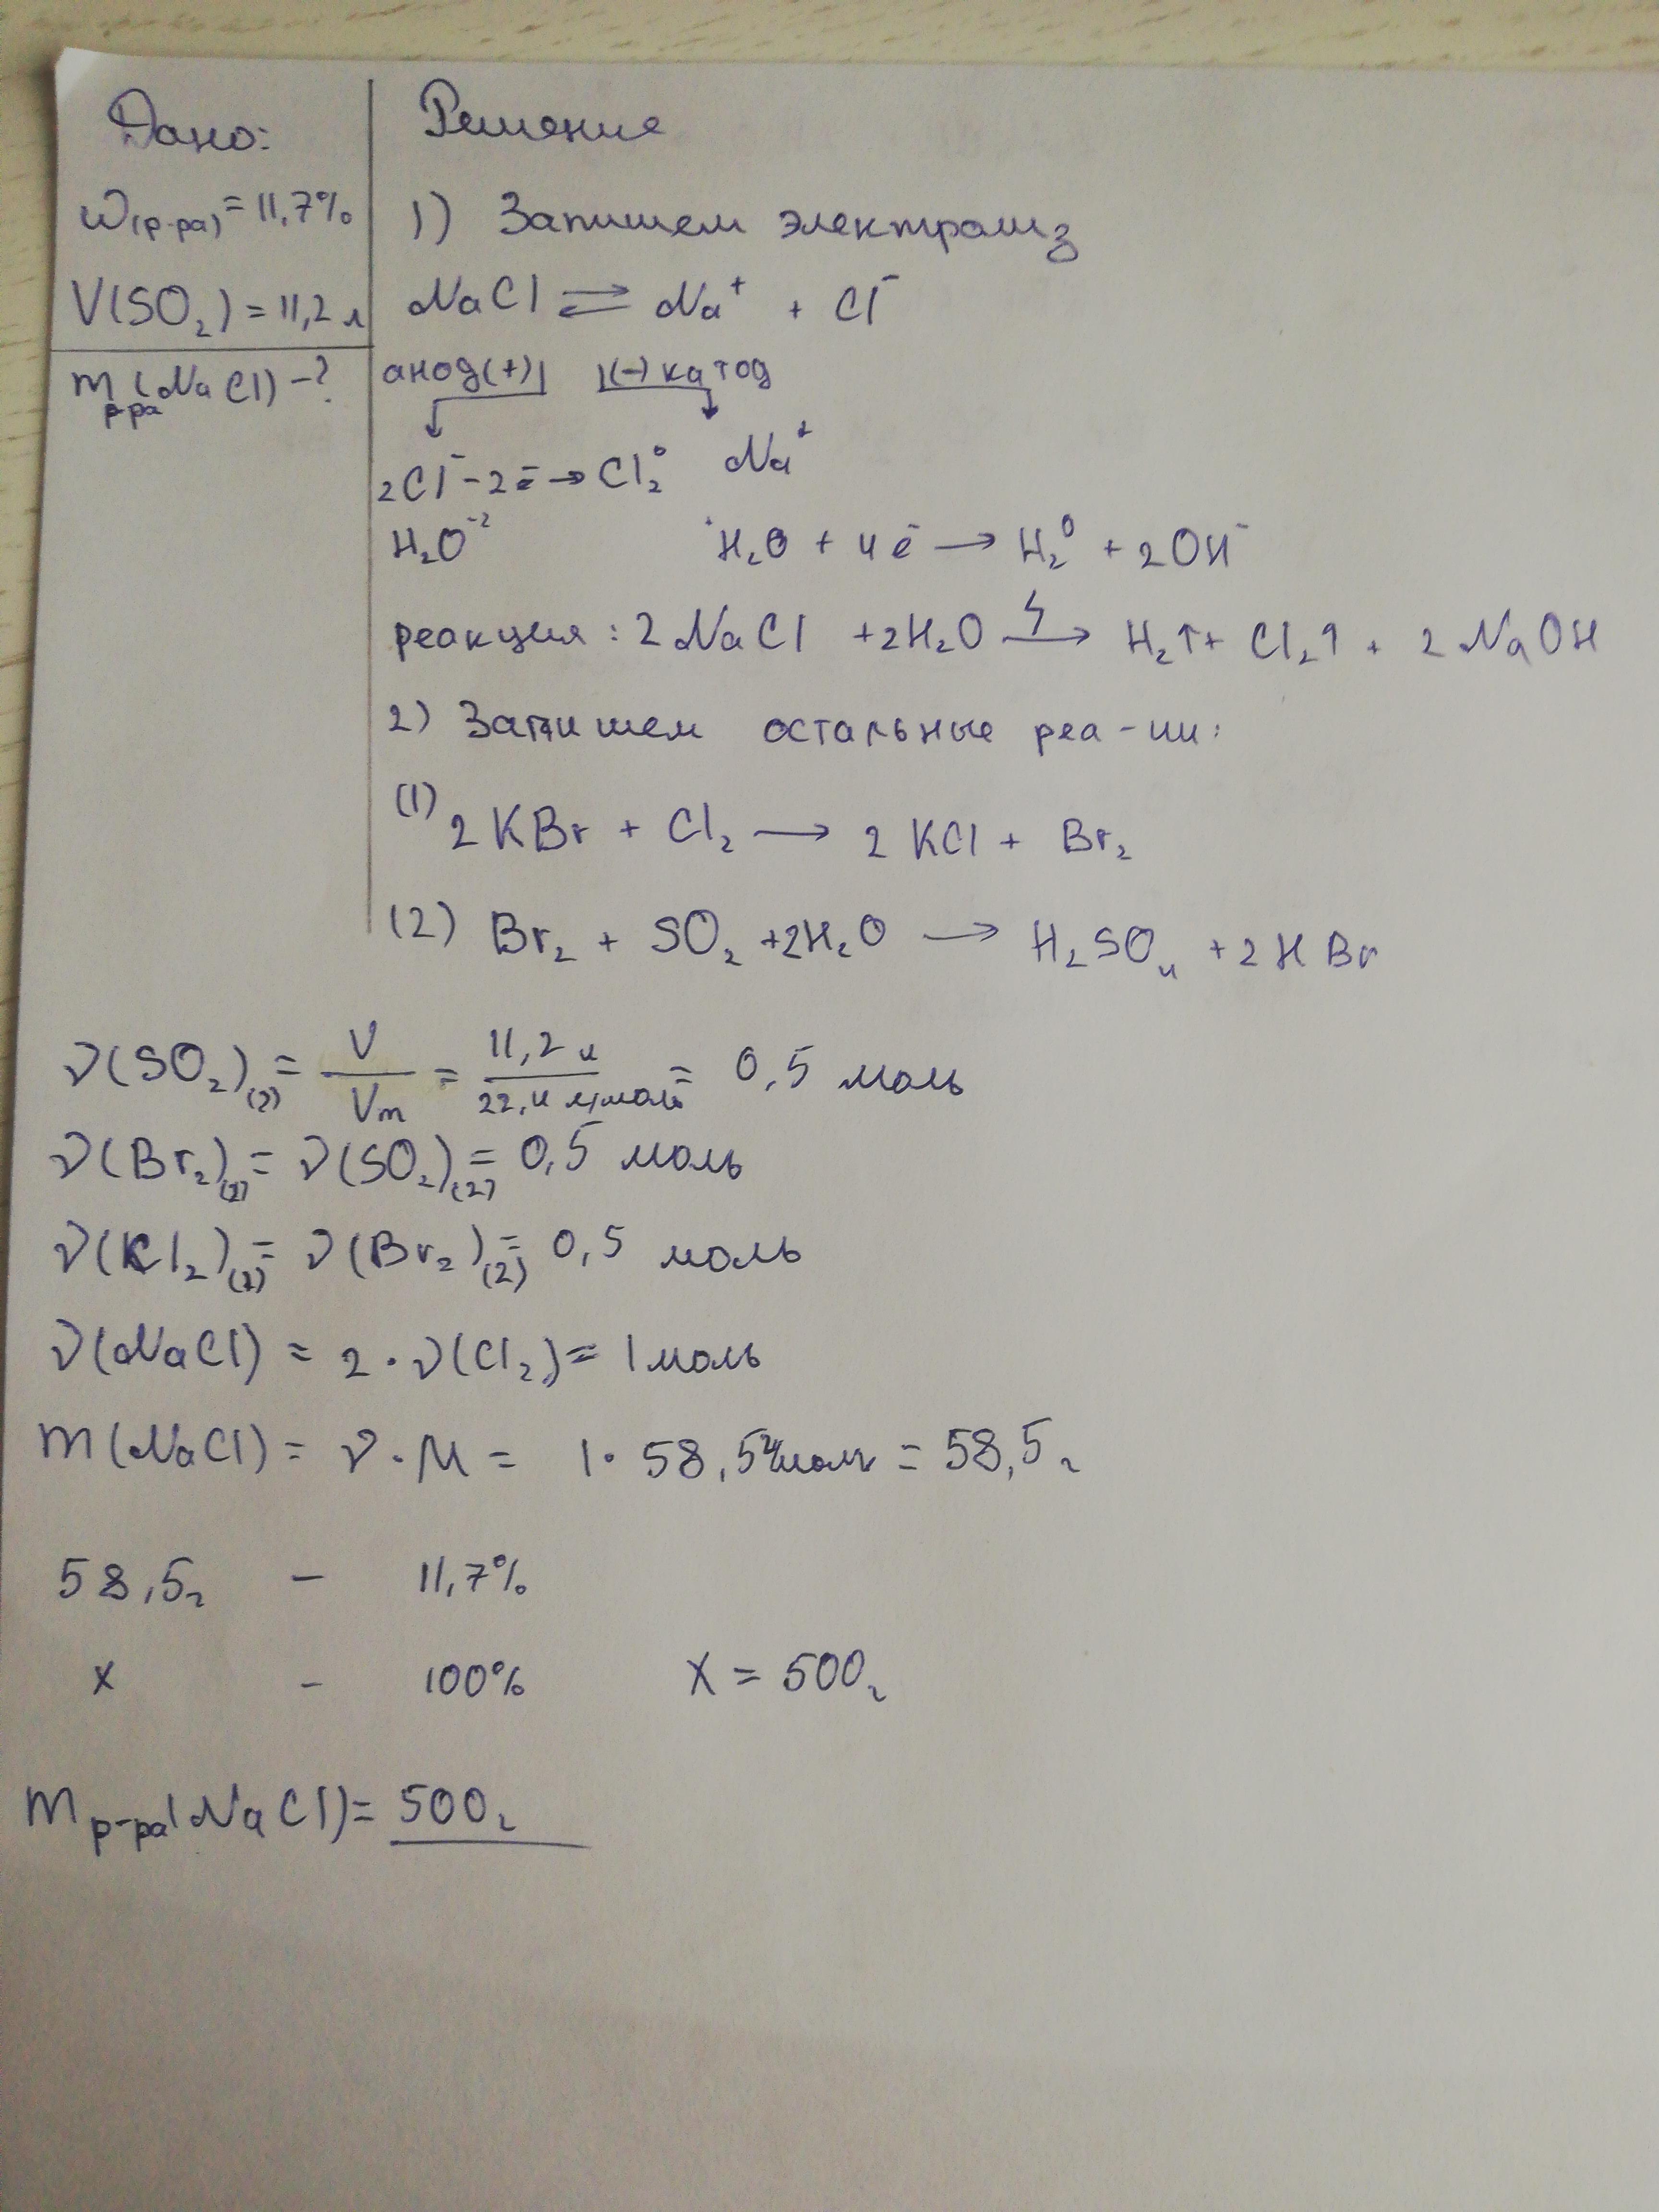 Дано:
ω(р-ра) = 11,7%
V(SO₂) = 11,2 л
m р-ра (NaCl) - ?
Решение
1) Запишем электролиз
NaCl ⇌ Na⁺ + Cl⁻
анод(+) (-) катод
2Cl⁻ - 2ē → Cl₂⁰ Na⁺
H₂O⁻² H₂O + 4ē → H₂⁰ + 2OH⁻
реакция: 2NaCl + 2H₂O → H₂↑ + Cl₂↑ + 2NaOH
2) Запишем остальные реа-ции:
(1) 2KBr + Cl₂ → 2KCl + Br₂
(2) Br₂ + SO₂ + 2H₂O → H₂SO₄ + 2HBr
ν(SO₂)₍₂₎ = V/Vm = 11,2 л / 22,4 л/моль = 0,5 моль
ν(Br₂)₍₂₎ = ν(SO₂)₍₂₎ = 0,5 моль
ν(Cl₂)₍₁₎ = ν(Br₂)₍₂₎ = 0,5 моль
ν(NaCl) = 2 · ν(Cl₂) = 1 моль
m(NaCl) = ν · M = 1 · 58,5 г/моль = 58,5 г
58,5 г - 11,7%
x - 100% x = 500 г
m р-ра(NaCl) = 500 г